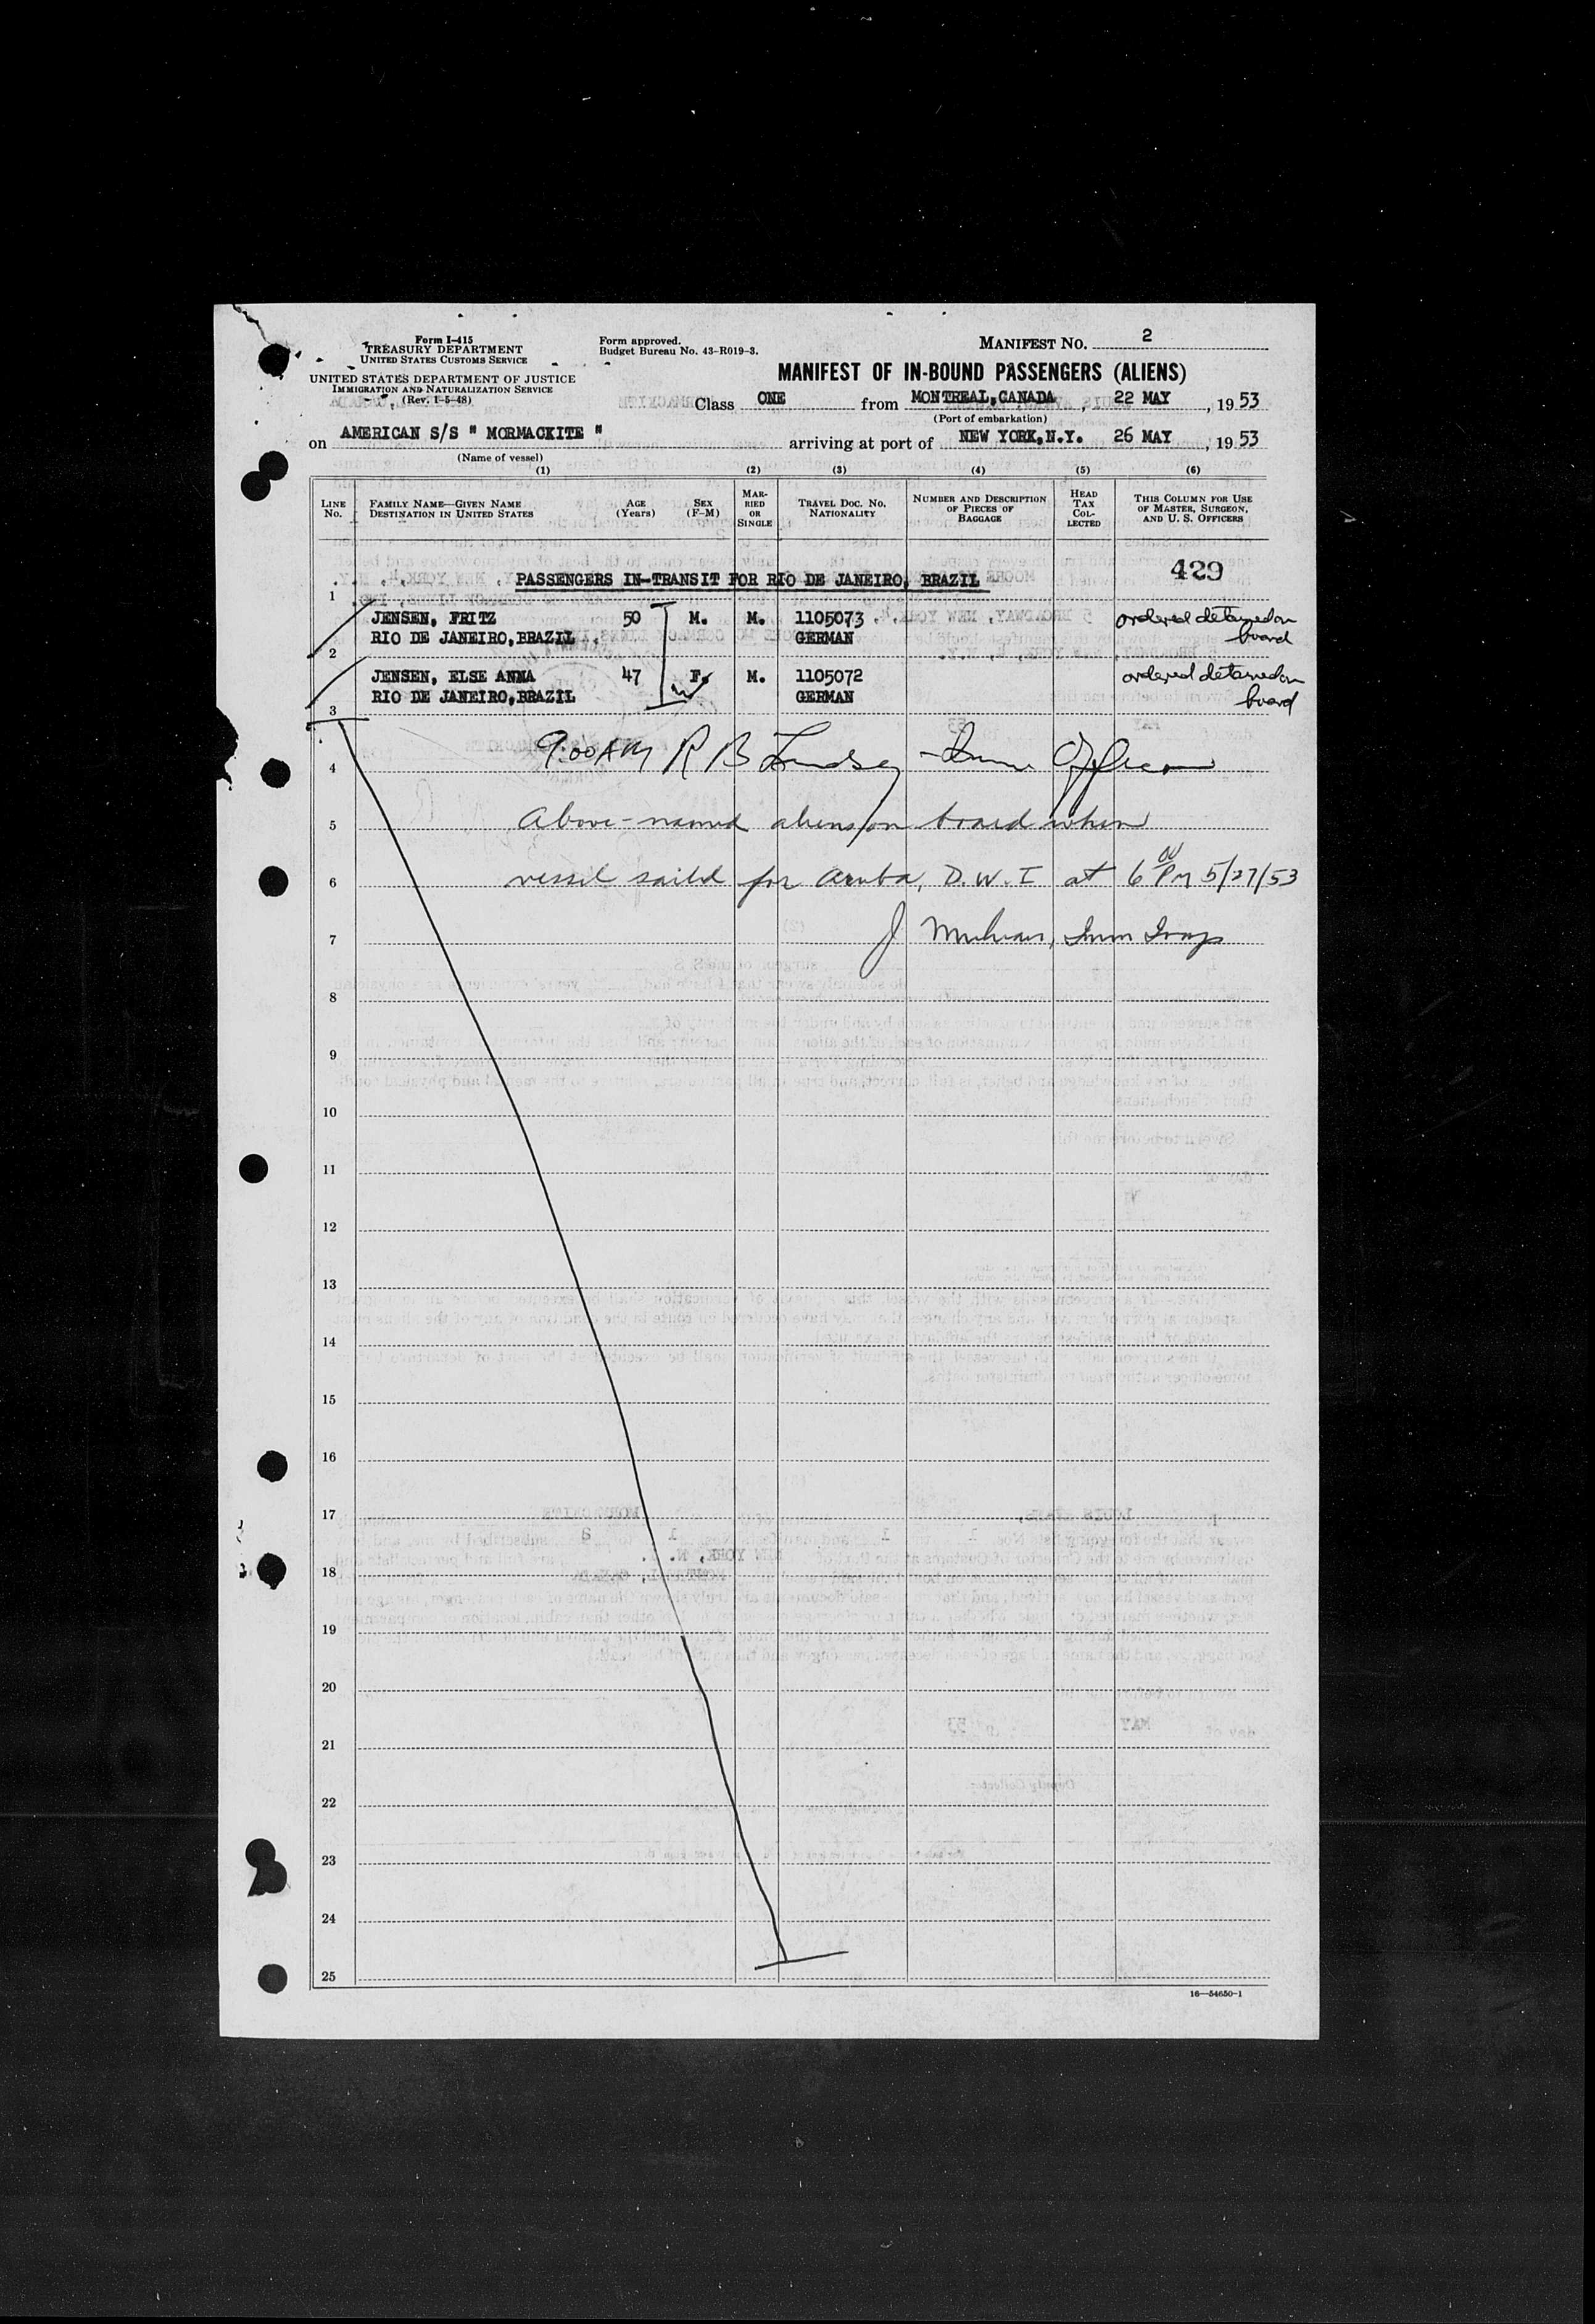 Form I-415
TREASURY DEPARTMENT
UNITED STATES CUSTOMS SERVICE
UNITED STATES DEPARTMENT OF JUSTICE
IMMIGRATION AND NATURALIZATION SERVICE
(Rev. 1-5-48)
Form approved.
Budget Bureau No. 43-R019-3.
MANIFEST NO. 2
MANIFEST OF IN-BOUND PASSENGERS (ALIENS)
Class ONE from MONTREAL, CANADA, 22 MAY, 1953
(Port of embarkation)
on AMERICAN S/S " MORMACKITE " arriving at port of NEW YORK, N.Y. 26 MAY, 1953
(Name of vessel)
(1) (2) (3) (4) (5) (6)
LINE No. FAMILY NAME—GIVEN NAME DESTINATION IN UNITED STATES AGE (Years) SEX (F-M) MARRIED OR SINGLE TRAVEL DOC. NO. NATIONALITY NUMBER AND DESCRIPTION OF PIECES OF BAGGAGE HEAD TAX COLLECTED THIS COLUMN FOR USE OF MASTER, SURGEON, AND U. S. OFFICERS
429
1 PASSENGERS IN-TRANSIT FOR RIO DE JANEIRO, BRAZIL
JENSEN, FRITZ 50 M. M. 1105073 ordered detained on
2 RIO DE JANEIRO, BRAZIL GERMAN board
JENSEN, ELSE ANNA 47 F. M. 1105072 ordered detained on
3 RIO DE JANEIRO, BRAZIL GERMAN board
4 9:00 AM R B Lindsey Imm Officer
5 Above-named aliens on board when
6 vessel sailed for Aruba, D.W.I at 6 00 PM 5/27/53
7 J Imm Insp
8
9
10
11
12
13
14
15
16
17
18
19
20
21
22
23
24
25
16—54650-1